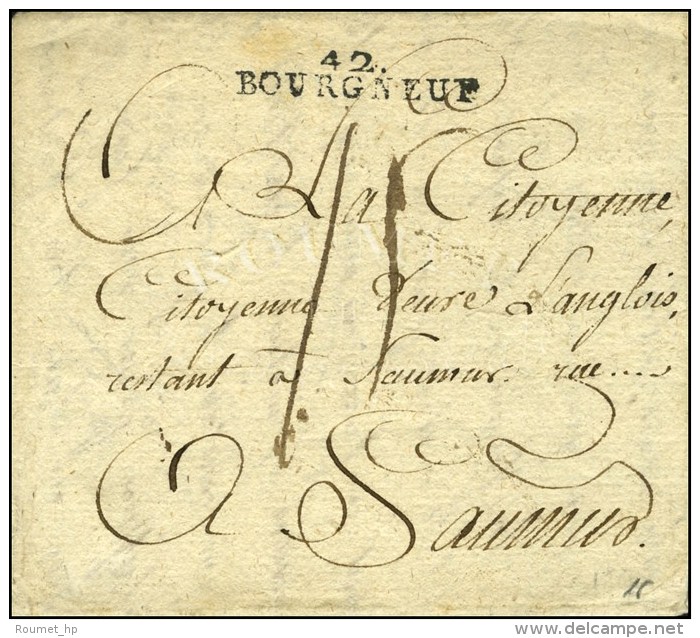 42.
BOURGNEUF
A La Citoyenne,
Citoyenne veuve Langlois,
restant à Saumur rue....
A Saumur.
15
Roumet_hp
delcampe.net